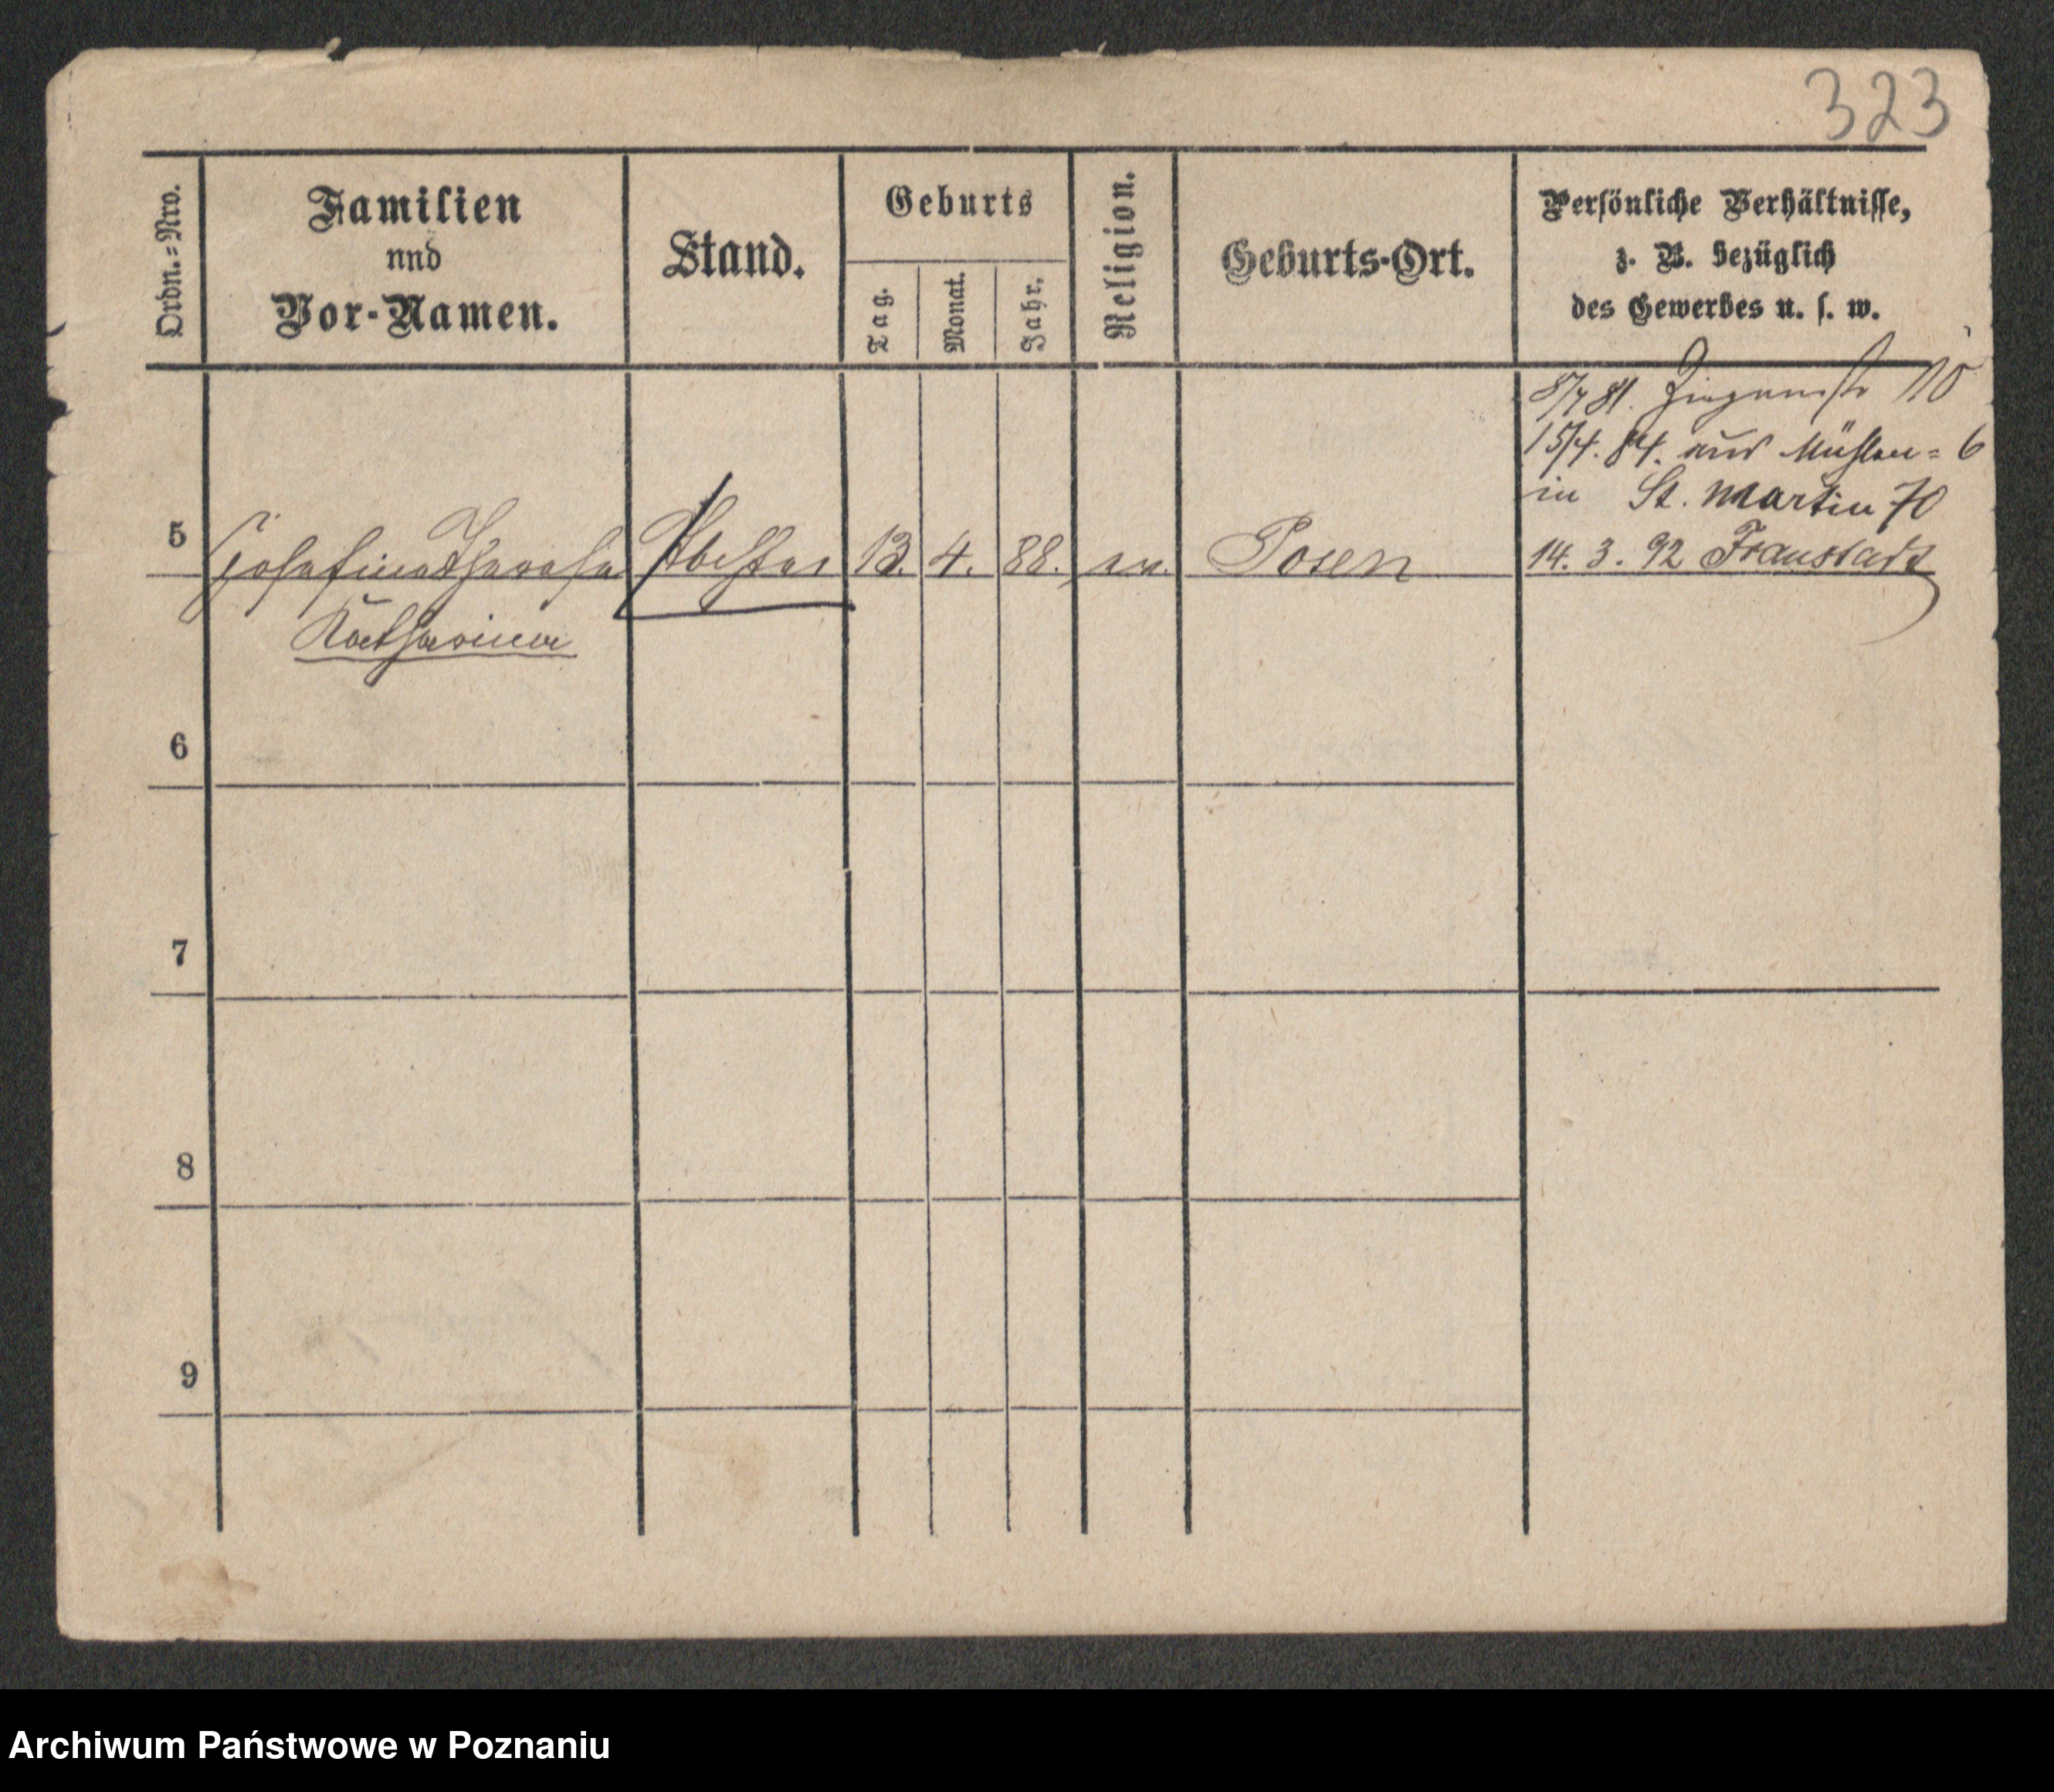 323
Ordn.=Nro.
Familien
nnd
Vor-Namen.
Stand.
Geburts
Tag.
Monat.
Jahr.
Religion.
Geburts-Ort.
Persönliche Verhältnisse,
z. B. bezüglich
des Gewerbes u. s. w.
8/7 81. Ziegenstr 10
15/4. 84. aus Mühlen= 6
in St. Martin 70
5 Josefine Therese Tochter 13. 4. 88. ev. Posen 14. 3. 92 Fraustadt
Katharina
6
7
8
9
Archiwum Państwowe w Poznaniu